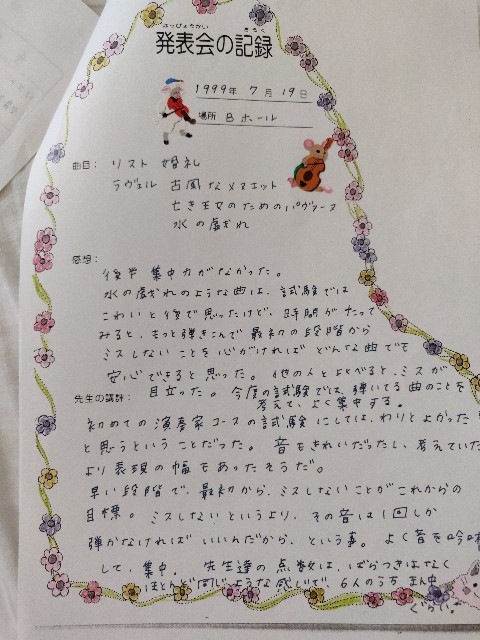 はっぴょうかい きろく
発表会の記録
1999年 7月 19日
場所 Bホール
曲目: リスト 婚礼
ラヴェル 古風なメヌエット
亡き王女のためのパヴァーヌ
水の戯れ
感想:
後半集中力がなかった。
水の戯れのような曲は、試験では
こわいと後で思ったけど、時間がたって
みると、もっと弾きこんで最初の段階から
ミスしないことを心がければどんな曲でも
安心できると思った。他の人とくらべると、ミスが
目立った。今度の試験では、弾いてる曲のことを
考えて、よく集中する。
先生の講評:
初めての演奏家コースの試験にしては、わりとよかった
と思うということだった。音もきれいだったし、考えていた
より表現の幅もあったそうだ。
早い段階で、最初から、ミスしないことがこれからの
目標。ミスしないというより、その音は1回しか
弾かなければいいんだから、という事。よく音を吟味
して、集中。先生達の点数は、ばらつきはなく
ほとんど同じような感じで、6人のうち まん中
ぐらい。